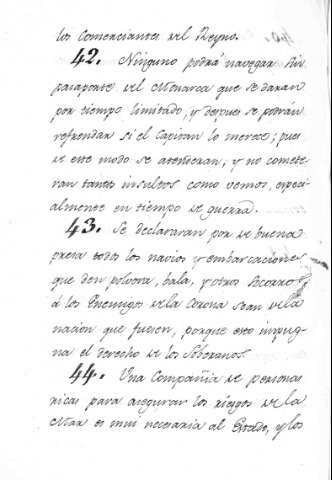 los Comerciantes del Reyno.
42. Ninguno podrá navegar sin
pasaporte del Monarca que se daran
por tiempo limitado; y despues se podrán
refrendar si el Capitan lo merece; pues
de este modo se atenderan, y no comete
ran tantos insultos como vemos, especi
almente en tiempo de guerra.
43. Se declararan por de buena
presa todos los navios y embarcaciones
que den polvora, bala, y otros socorros
á los Enemigos de la Corona sean de la
nacion que fuesen, porque esto impug-
na el derecho de los Soberanos.
44. Una Compañia de personas
ricas para asegurar los riesgos de la
Mar es mui necesaria al Estado, y los